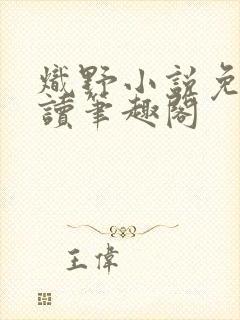 熾野小説免
讀筆趣閣
王偉